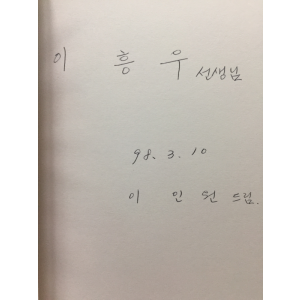 이 흥 우 선생님
98. 3. 10
이 인 원 드림.